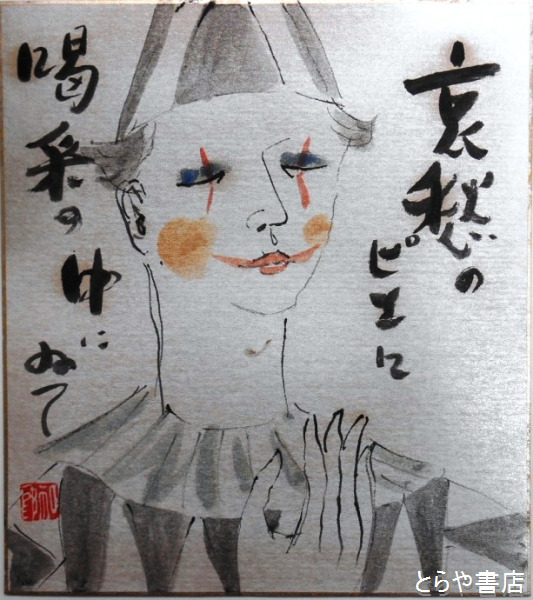 哀愁の
ピエロ
喝采の中に
ゐて
とらや書店